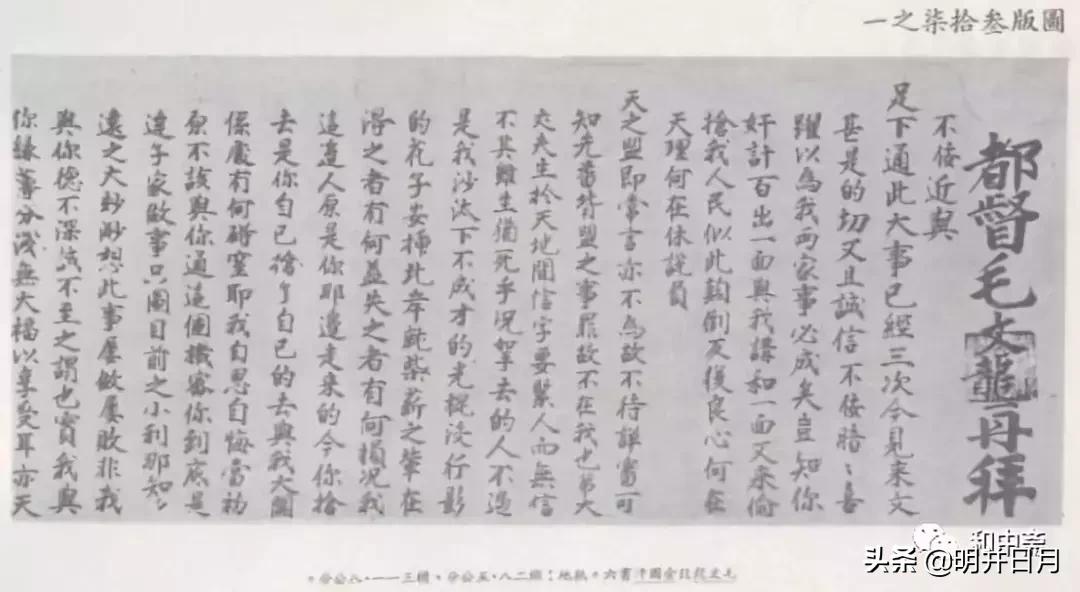 圖版叁拾柒之一
都督毛文龍再拜
不佞近與
足下通此大事已經三次今見來文
甚是的切又且誠信不佞暗〻喜
躍以為我兩家事必成矣豈知你
奸計百出一面與我講和一面又來偷
搶我人民似此顛倒反復良心何在
天理何在休說負
天之盟即常言亦不為故不待講當可
知先番背盟之事罪故不在我也第大
丈夫生於天地間信字要緊人而無信
不其雖生猶死乎況拏去的人不過
是我沙汰下不成才的光棍沒行影
的花子柴薪之輩在
得之者有何益失之者有何損況我
這邊人原是你那邊走來的今你搶
去是你自己搶了自己的去與我大關
係處有何礙窒耶我自思自悔當初
原不該與你通這個機密你到底是
達子家做事只圖目前之小利那知〻
遠之大妙〻想此事屢做屢敗非我
與你德不深誠不至之謂也實我與
你緣薄分淺無大福以享受耳亦天
毛文龍致金國汗書六。紙地；縱二八．五公分，橫三一一．八公分。
头条 @明井日月